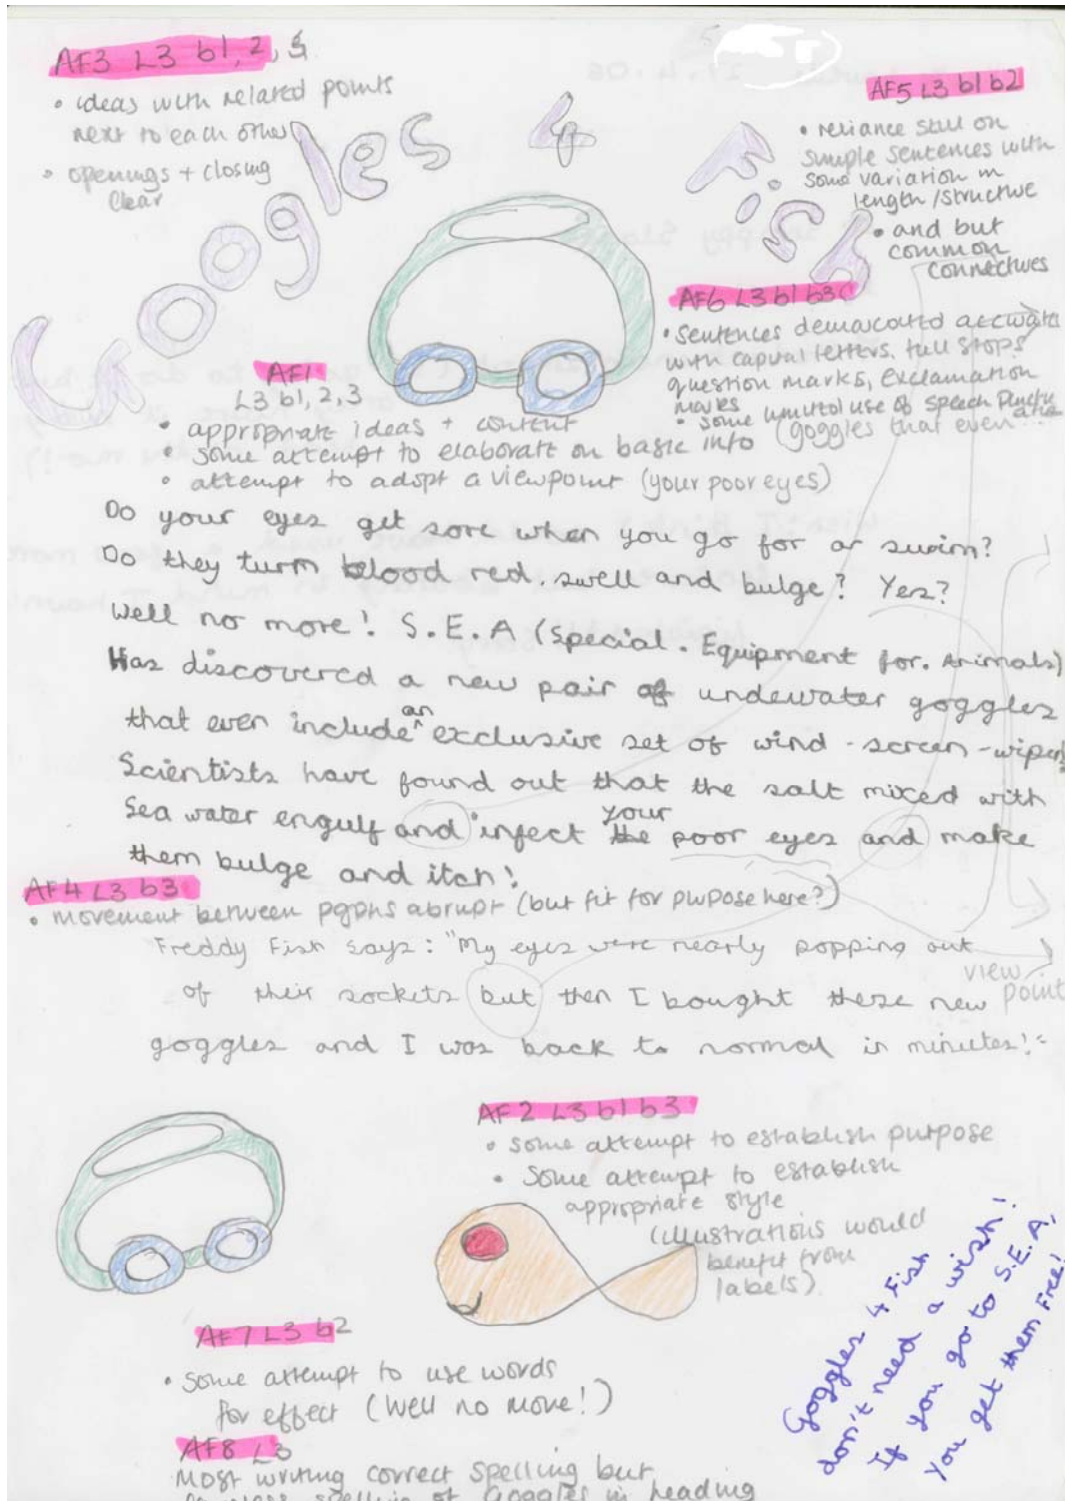 AF3 L3 b1, 2, 4
• ideas with related points
next to each other
• openings + closing
clear
Googles 4 Fish
AF5 L3 b1 b2
• reliance still on
simple sentences with
some variation in
length/structure
• and but
common
connectives
AF6 L3 b1 b3
• Sentences demarcated accurate
with capital letters, full stops
question marks, exclamation
marks
• some limited use of speech punctu
(goggles that even...
AF1
L3 b1, 2, 3
• appropriate ideas + content
• some attempt to elaborate on basic info
• attempt to adopt a viewpoint (your poor eyes)
Do your eyes get sore when you go for a swim?
Do they turn blood red, swell and bulge? Yes?
Well no more! S.E.A (Special. Equipment for. Animals)
Has discovered a new pair of undewater goggles
that even include an exclusive set of wind-screen-wipers
Scientists have found out that the salt mixed with
Sea water engulf and infect the your poor eyes and make
them bulge and itch!
AF4 L3 b3
• movement between pgphs abrupt (but fit for purpose here?)
Freddy Fish says: "My eyes were nearly popping out
of their sockets but then I bought these new
goggles and I was back to normal in minutes!"
view
point
AF2 L3 b1 b3
• some attempt to establish purpose
• Some attempt to establish
appropriate style
(illustrations would
benefit from
labels)
Goggles 4 Fish
don't need a wish!
If you go to S.E.A,
You get them Free!
AF7 L3 b2
• some attempt to use words
for effect (Well no more!)
AF8 L3
Most writing correct spelling but
spelling of Goggles in heading